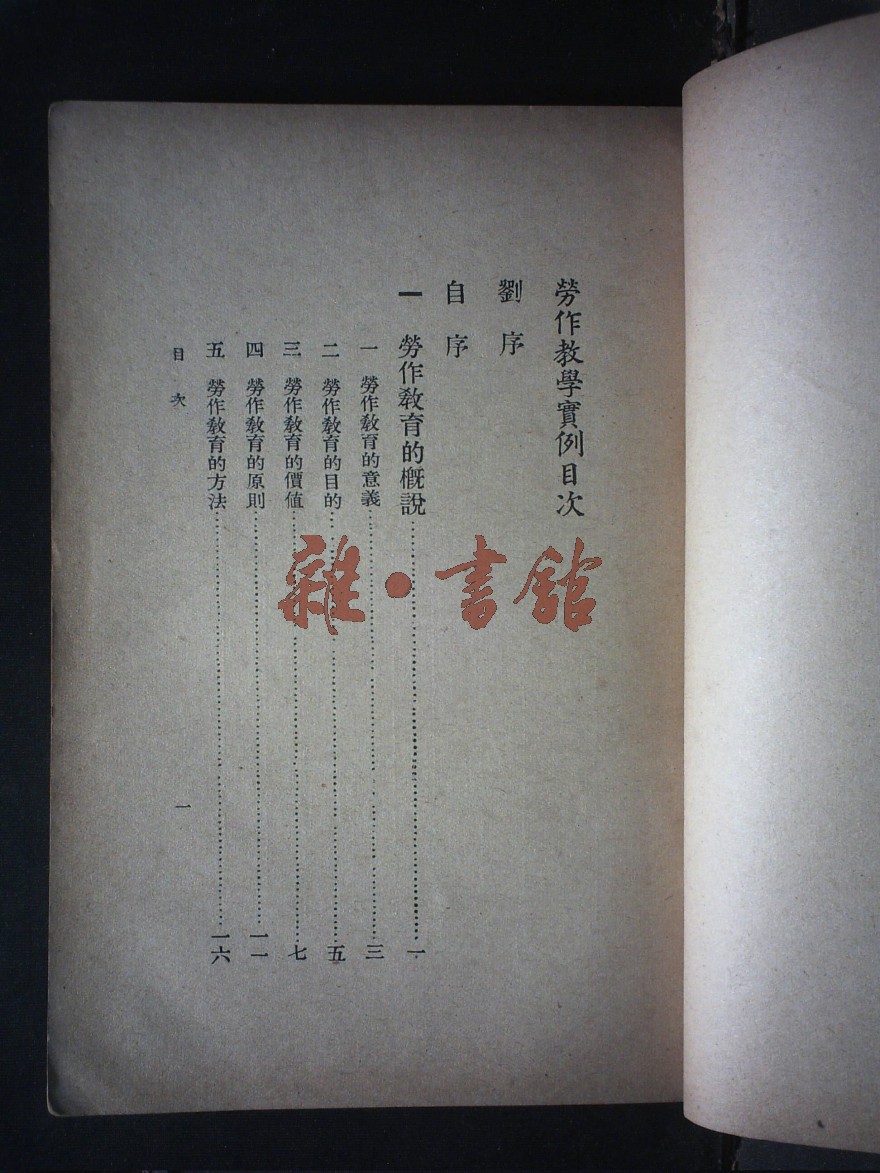 勞作教學實例目次
劉序
自序
一 勞作教育的概說……一
一 勞作教育的意義……三
二 勞作教育的目的……五
三 勞作教育的價值……七
四 勞作教育的原則……一一
五 勞作教育的方法……一六
目次 一
雜·書館